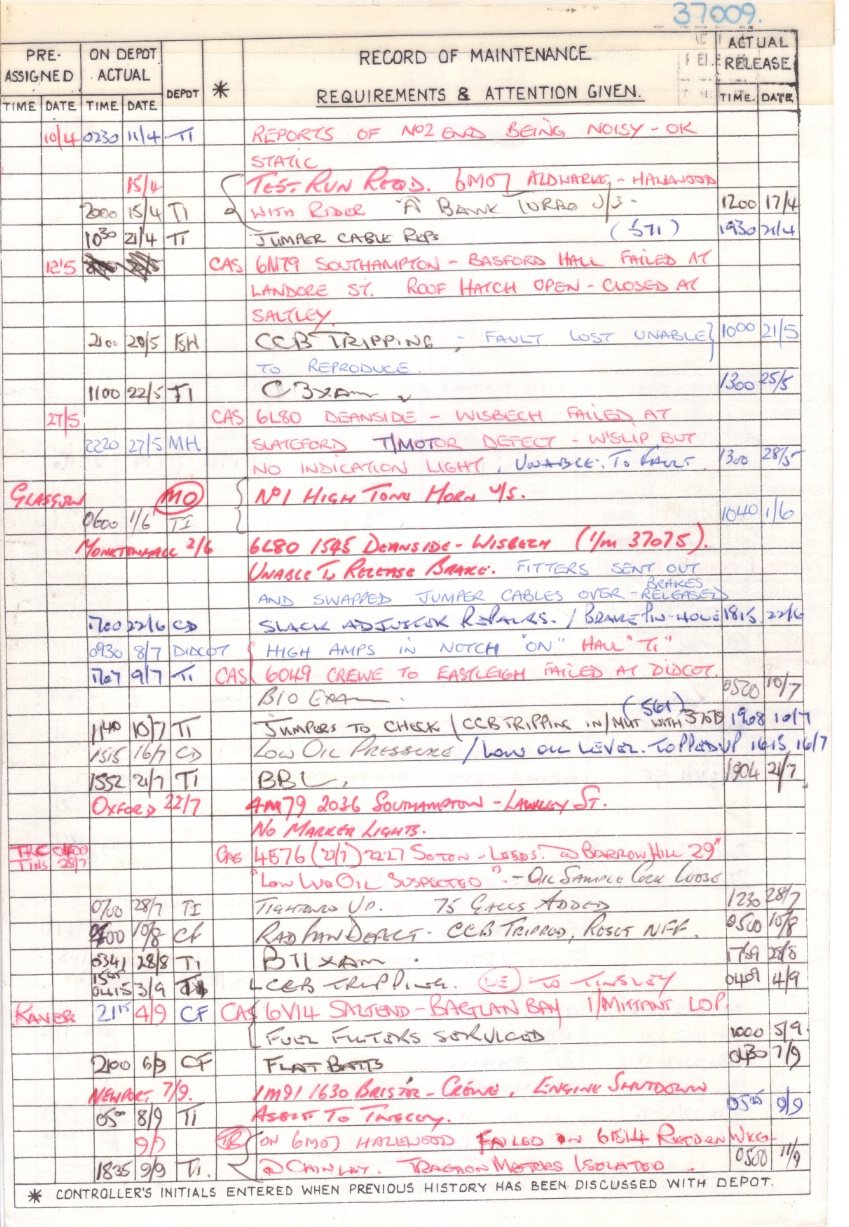 37009.
PRE-ASSIGNED ON DEPOT ACTUAL DEPOT * RECORD OF MAINTENANCE REQUIREMENTS & ATTENTION GIVEN. ACTUAL RELEASE
TIME DATE TIME DATE TIME. DATE
10/4 0230 11/4 TI REPORTS OF NO2 END BEING NOISY - OK
STATIC
15/4 TEST RUN REQD. 6M07 ALDWARKE - HAZLEWOOD
2000 15/4 TI WITH RIDER "A" BANK TURBO U/S. 1200 17/4
1030 21/4 TI JUMPER CABLE REPS (571) 1930 21/4
12/5 CAS 6N79 SOUTHAMPTON - BASFORD HALL FAILED AT
LANDORE ST. ROOF HATCH OPEN - CLOSED AT
SALTLEY.
2100 20/5 BH CCB TRIPPING - FAULT LOST UNABLE 1000 21/5
TO REPRODUCE.
1100 22/5 TI C EXAM 1300 25/5
27/5 CAS 6L80 DEANSIDE - WISBECH FAILED AT
2220 27/5 MH SLATEFORD T/MOTOR DEFECT - W'SLIP BUT
NO INDICATION LIGHT. UNABLE TO FAULT. 1300 28/5
GLASGOW MO No1 HIGH TONE HORN U/S.
0600 1/6 TI 1040 1/6
MONKTONHALL 2/6 6L80 1545 DEANSIDE - WISBECH (I/M 37075).
UNABLE TO RELEASE BRAKE. FITTERS SENT OUT
AND SWAPPED JUMPER CABLES OVER - BRAKES RELEASED
1700 22/6 CD SLACK ADJUSTER REPAIRS. / BRAKE PIN-HOLE 1815 22/6
0930 8/7 DIDCOT HIGH AMPS IN NOTCH "ON" HALL "TI"
1707 9/7 TI CAS 6O49 CREWE TO EASTLEIGH FAILED AT DIDCOT.
B10 EXAM. 0520 10/7
1140 10/7 TI JUMPERS TO CHECK (CCB TRIPPING IN/MUT WITH (561) 1908 10/7
1515 16/7 CD LOW OIL PRESSURE / LOW OIL LEVEL. TOPPED UP 1615 16/7
1552 21/7 TI BBL. 1904 21/7
OXFORD 22/7 4M79 2036 SOUTHAMPTON - LAWLEY ST.
NO MARKER LIGHTS.
TINS 28/7 CAS 4E76 (27/7) 2227 SOTON - LEEDS. @ BARROW HILL 29"
"LOW LUB OIL SUSPECTED". - OIL SAMPLE COCK LOOSE
0700 28/7 TI TIGHTENED UP. 75 GALLS ADDED 1230 28/7
10/8 CF RAD FAN DEFECT. CCB TRIPPED, RESET NFF. 0500 10/8
0341 28/8 TI B11 EXAM. 1759 28/8
0415 3/9 CCB TRIPPING. TO TINSLEY 0409 4/9
2115 4/9 CF CAS 6V14 SALTEND - BAGLAN BAY I/MITTANT LOP.
FUEL FILTERS SERVICED 1000 5/9
2100 6/9 CF FLAT BATTS 0430 7/9
NEWPORT 7/9. 1M91 1630 BRISTOL - CREWE, ENGINE SHUTDOWN
0500 8/9 TI ASSIST TO TINSLEY. 0505 9/9
9/9 TR ON 6M07 HAZLEWOOD FAILED ON 6E14 RETURN WKG
1835 9/9 TI. @ CHINLEY. TRACTION MOTORS ISOLATED. 0500 11/9
* CONTROLLER'S INITIALS ENTERED WHEN PREVIOUS HISTORY HAS BEEN DISCUSSED WITH DEPOT.